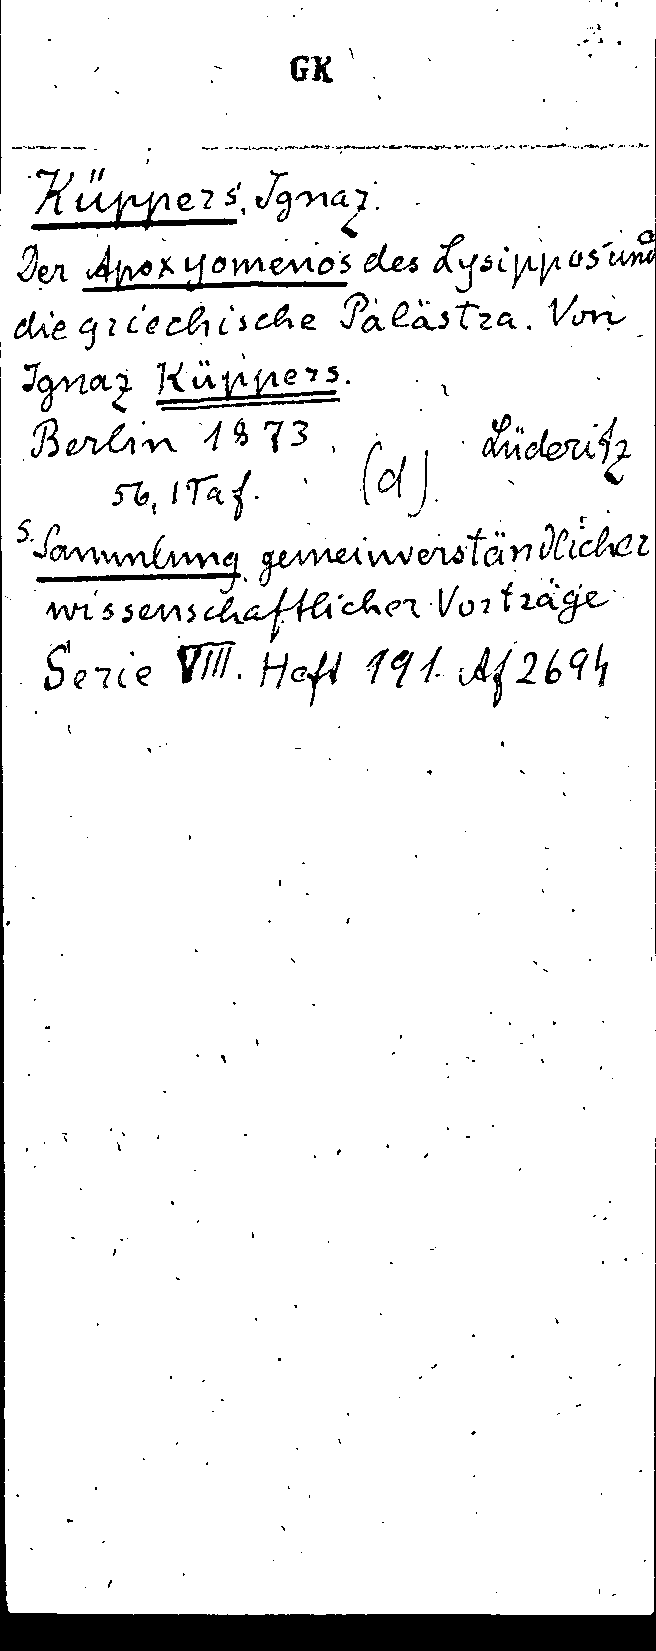 GK
Küppers, Ignaz.
Der Apoxyomenos des Lysippos und
die griechische Palästra. Von
Ignaz Küppers.
Berlin 1873. Lüderitz
56, 1 Taf. (d).
s. Sammlung gemeinverständlicher
wissenschaftlicher Vorträge
Serie VIII. Heft 191. Af 2694